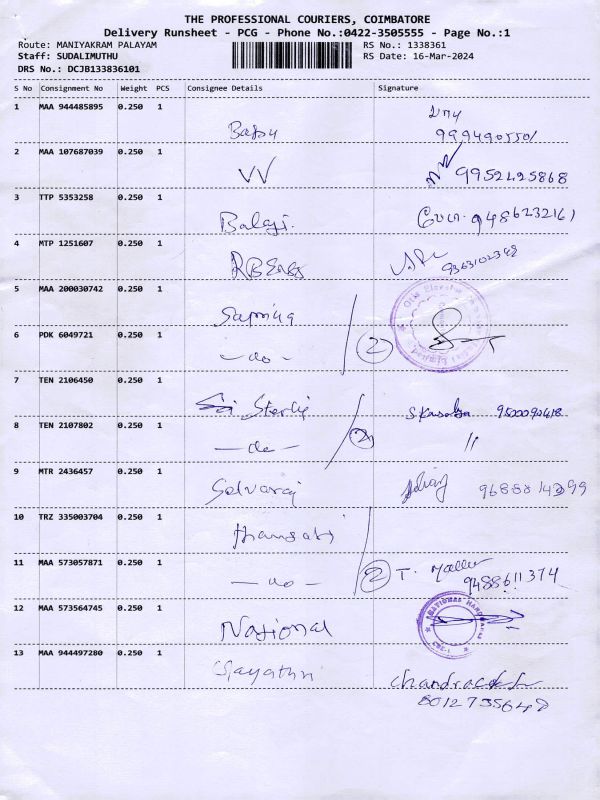 THE PROFESSIONAL COURIERS, COIMBATORE
Delivery Runsheet - PCG - Phone No.:0422-3505555 - Page No.:1
Route: MANIYAKRAM PALAYAM RS No.: 1338361
Staff: SUDALIMUTHU RS Date: 16-Mar-2024
DRS No.: DCJB133836101
S No Consignment No Weight PCS Consignee Details Signature
1 MAA 944485895 0.250 1
2 MAA 107687039 0.250 1 VV 9952425868
3 TTP 5353258 0.250 1 Balaji. 9486232161
4 MTP 1251607 0.250 1 9363102348
5 MAA 200030742 0.250 1
6 PDK 6049721 0.250 1 -do- 2
7 TEN 2106450 0.250 1
8 TEN 2107802 0.250 1 -do- 2 "
9 MTR 2436457 0.250 1 Selvaraj
10 TRZ 335003704 0.250 1
11 MAA 573057871 0.250 1 -do- 2 T. 9488611374
12 MAA 573564745 0.250 1 National NATIONAL
13 MAA 944497280 0.250 1 Gayathri
8012735648